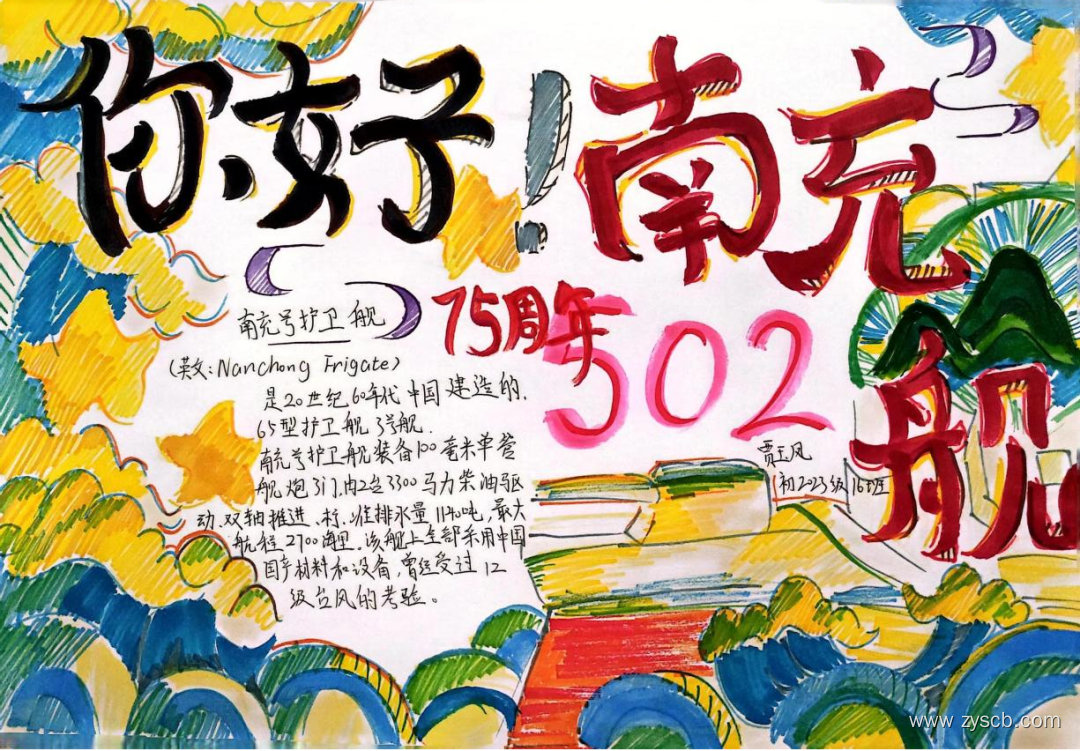 你好！南充舰
75周年
502
南充号护卫舰
（英文：Nanchong Frigate）
是20世纪60年代中国建造的
65型护卫舰3号舰.
南充号护卫舰装备100毫米单管
舰炮3门,内2台3300马力柴油驱
动、双轴推进、标准排水量1140吨,最大
航程2700海里.该舰上全部采用中国
国产材料和设备,曾经受过12
级台风的考验。
初2023级16班
www.zyscb.com